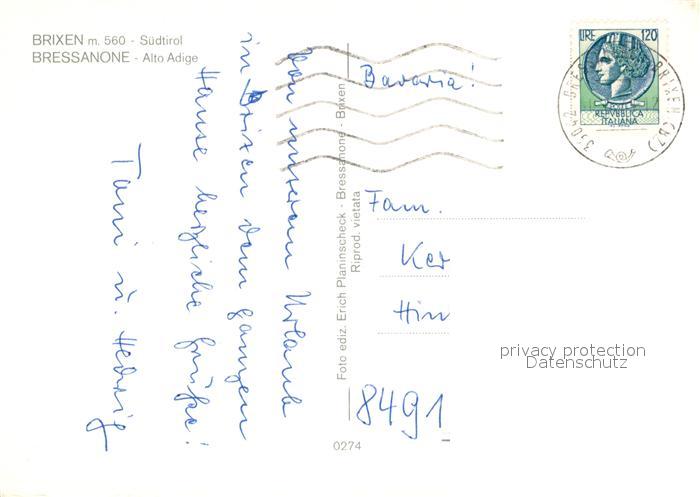 BRIXEN m. 560 - Südtirol
BRESSANONE - Alto Adige
Von unserem Urlaub
in Brixen dem ganzen
Hause herzliche Grüße!
Toni u. Hedwig
Foto ediz. Erich Planinscheck - Bressanone - Brixen
Riprod. vietata
0274
LIRE 120
REPVBBLICA
ITALIANA
Bavaria!
Fam.
Ker
Hin
8491
privacy protection
Datenschutz